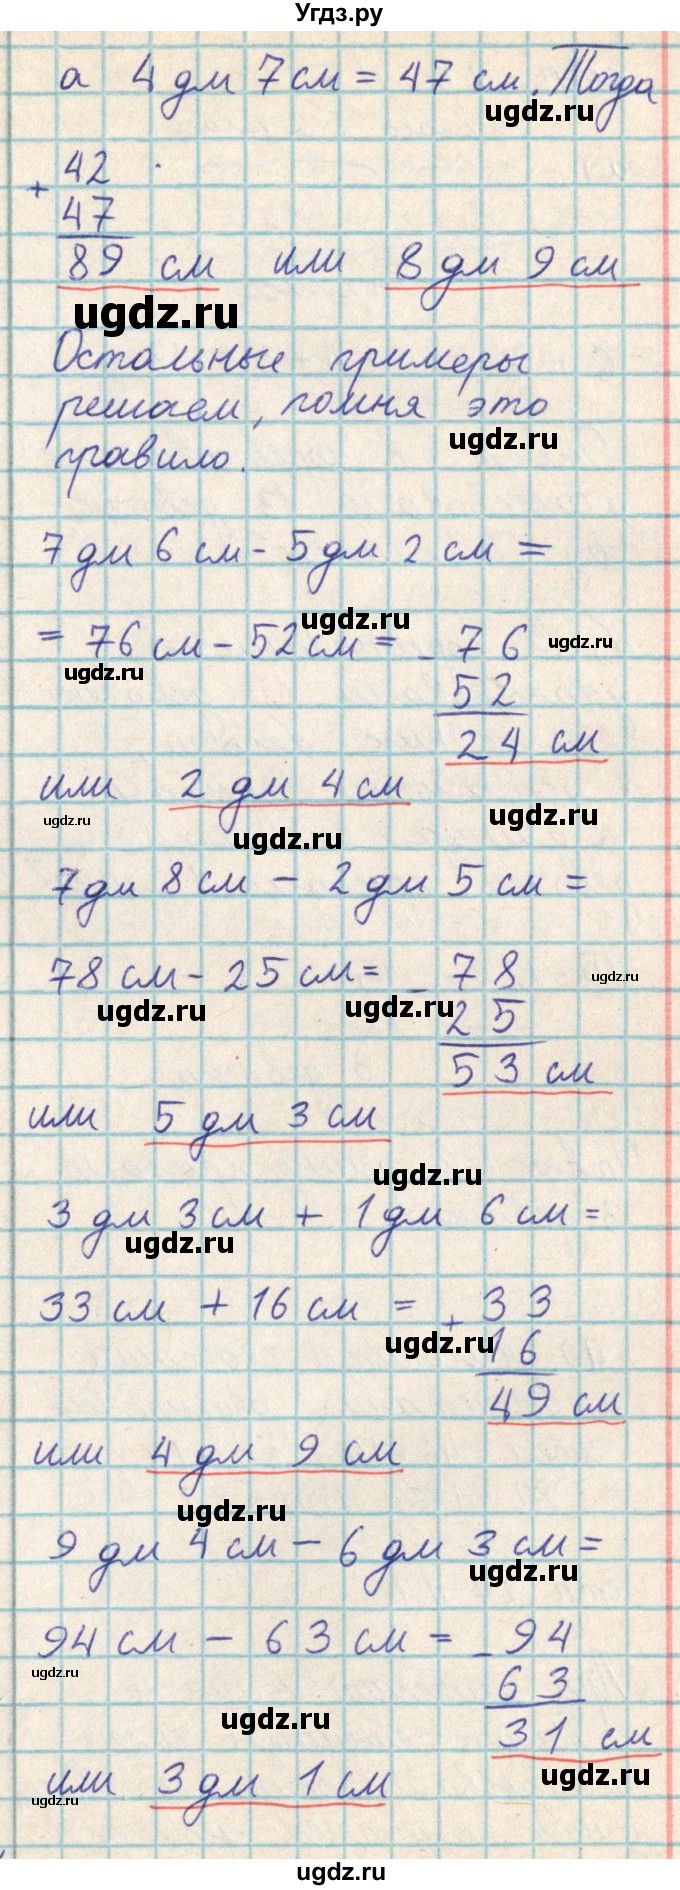 Угдз.ру
а 4 дм 7 см = 47 см. Тогда
ugdz.ru
+ 42
47
89 см или 8 дм 9 см
ugdz.ru
Остальные примеры
решаем, помня это
ugdz.ru
правило.
7 дм 6 см - 5 дм 2 см =
ugdz.ru
= 76 см - 52 см = - 76
ugdz.ru
ugdz.ru
52
24 см
или 2 дм 4 см
ugdz.ru
ugdz.ru
ugdz.ru
7 дм 8 см - 2 дм 5 см =
78 см - 25 см = - 78
ugdz.ru
ugdz.ru
ugdz.ru
25
53 см
или 5 дм 3 см
ugdz.ru
3 дм 3 см + 1 дм 6 см =
ugdz.ru
33 см + 16 см = + 33
ugdz.ru
16
49 см
или 4 дм 9 см
ugdz.ru
9 дм 4 см - 6 дм 3 см =
ugdz.ru
94 см - 63 см = - 94
ugdz.ru
63
ugdz.ru
31 см
или 3 дм 1 см
ugdz.ru
ugdz.ru
ugdz.ru